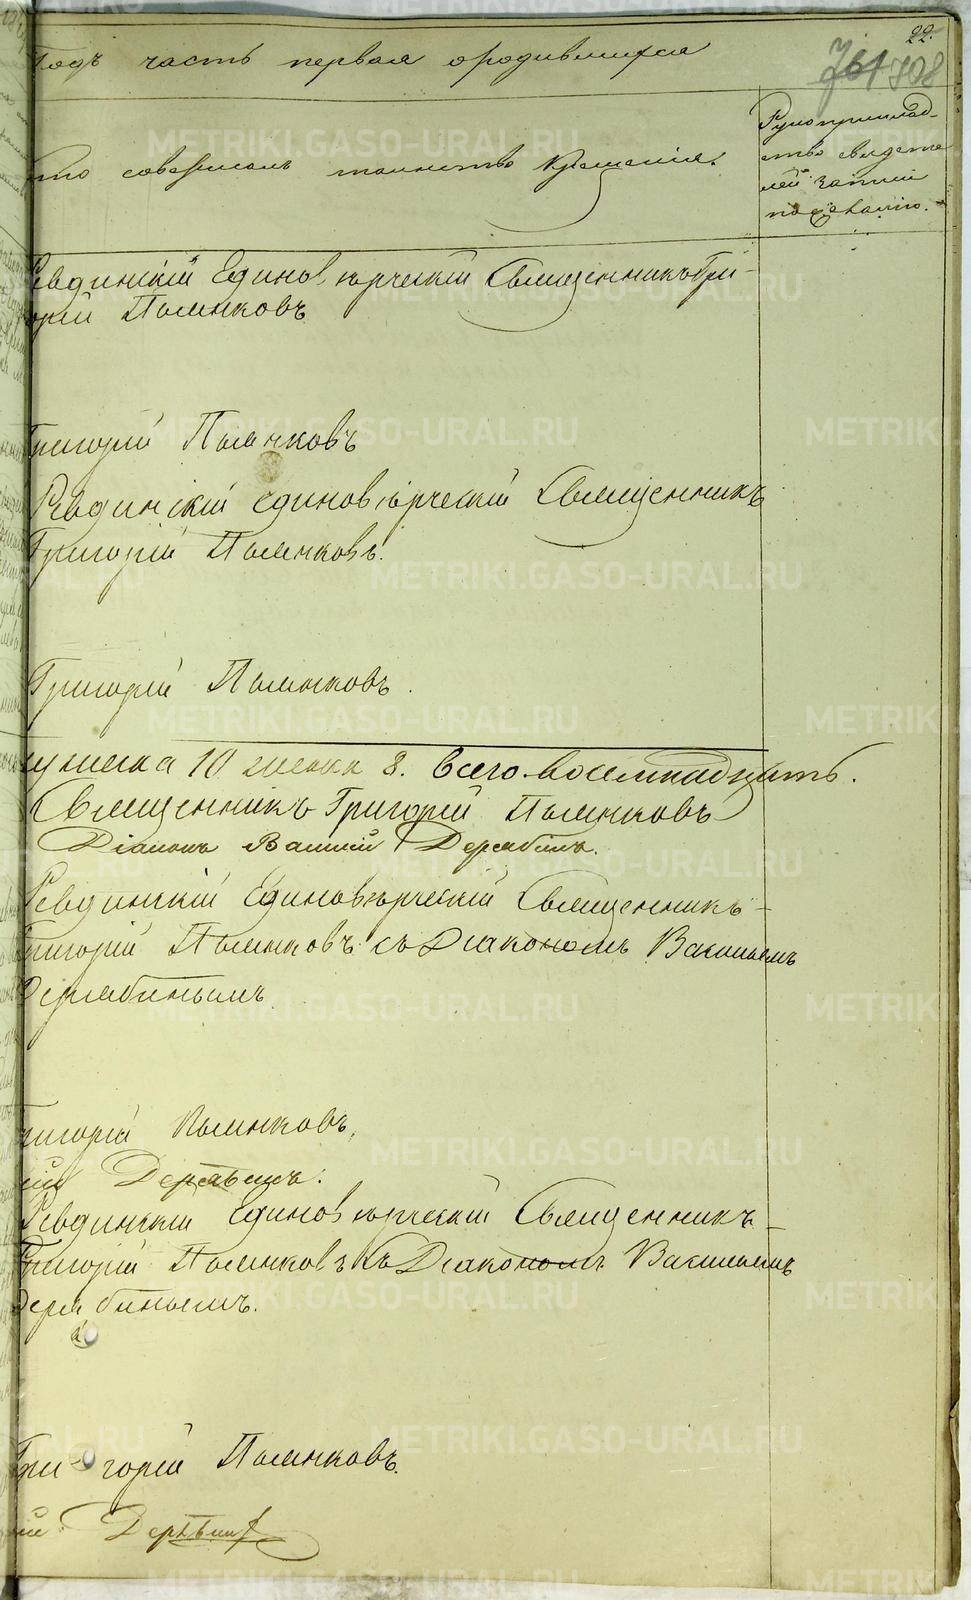 22.
Годъ часть первая о родившихся
761 708
Кто совершалъ таинство Крещенія.
Рукоприклад-
ство свидете-
лей записи
по желанію.
Ревдинскій Единоверческій Священникъ Гри-
горій Пьянковъ
Григорій Пьянковъ
Ревдинскій единоверческій Священникъ
Григорій Пьянковъ.
Григорій Пьянковъ.
мужеска 10 женска 8. Всего восемнадцать.
Священникъ Григорій Пьянковъ
Діаконъ Василій Дерябинъ.
Ревдинскій Единоверческій Священникъ
Григорій Пьянковъ съ Діакономъ Васильемъ
Дерябинымъ
Григорій Пьянковъ,
Дерябинъ.
Ревдинскій Единоверческій Священникъ
Григорій Пьянковъ съ Діакономъ Васильемъ
Дерябинымъ.
Григорій Пьянковъ.
Дерябинъ
METRIKI.GASO-URAL.RU